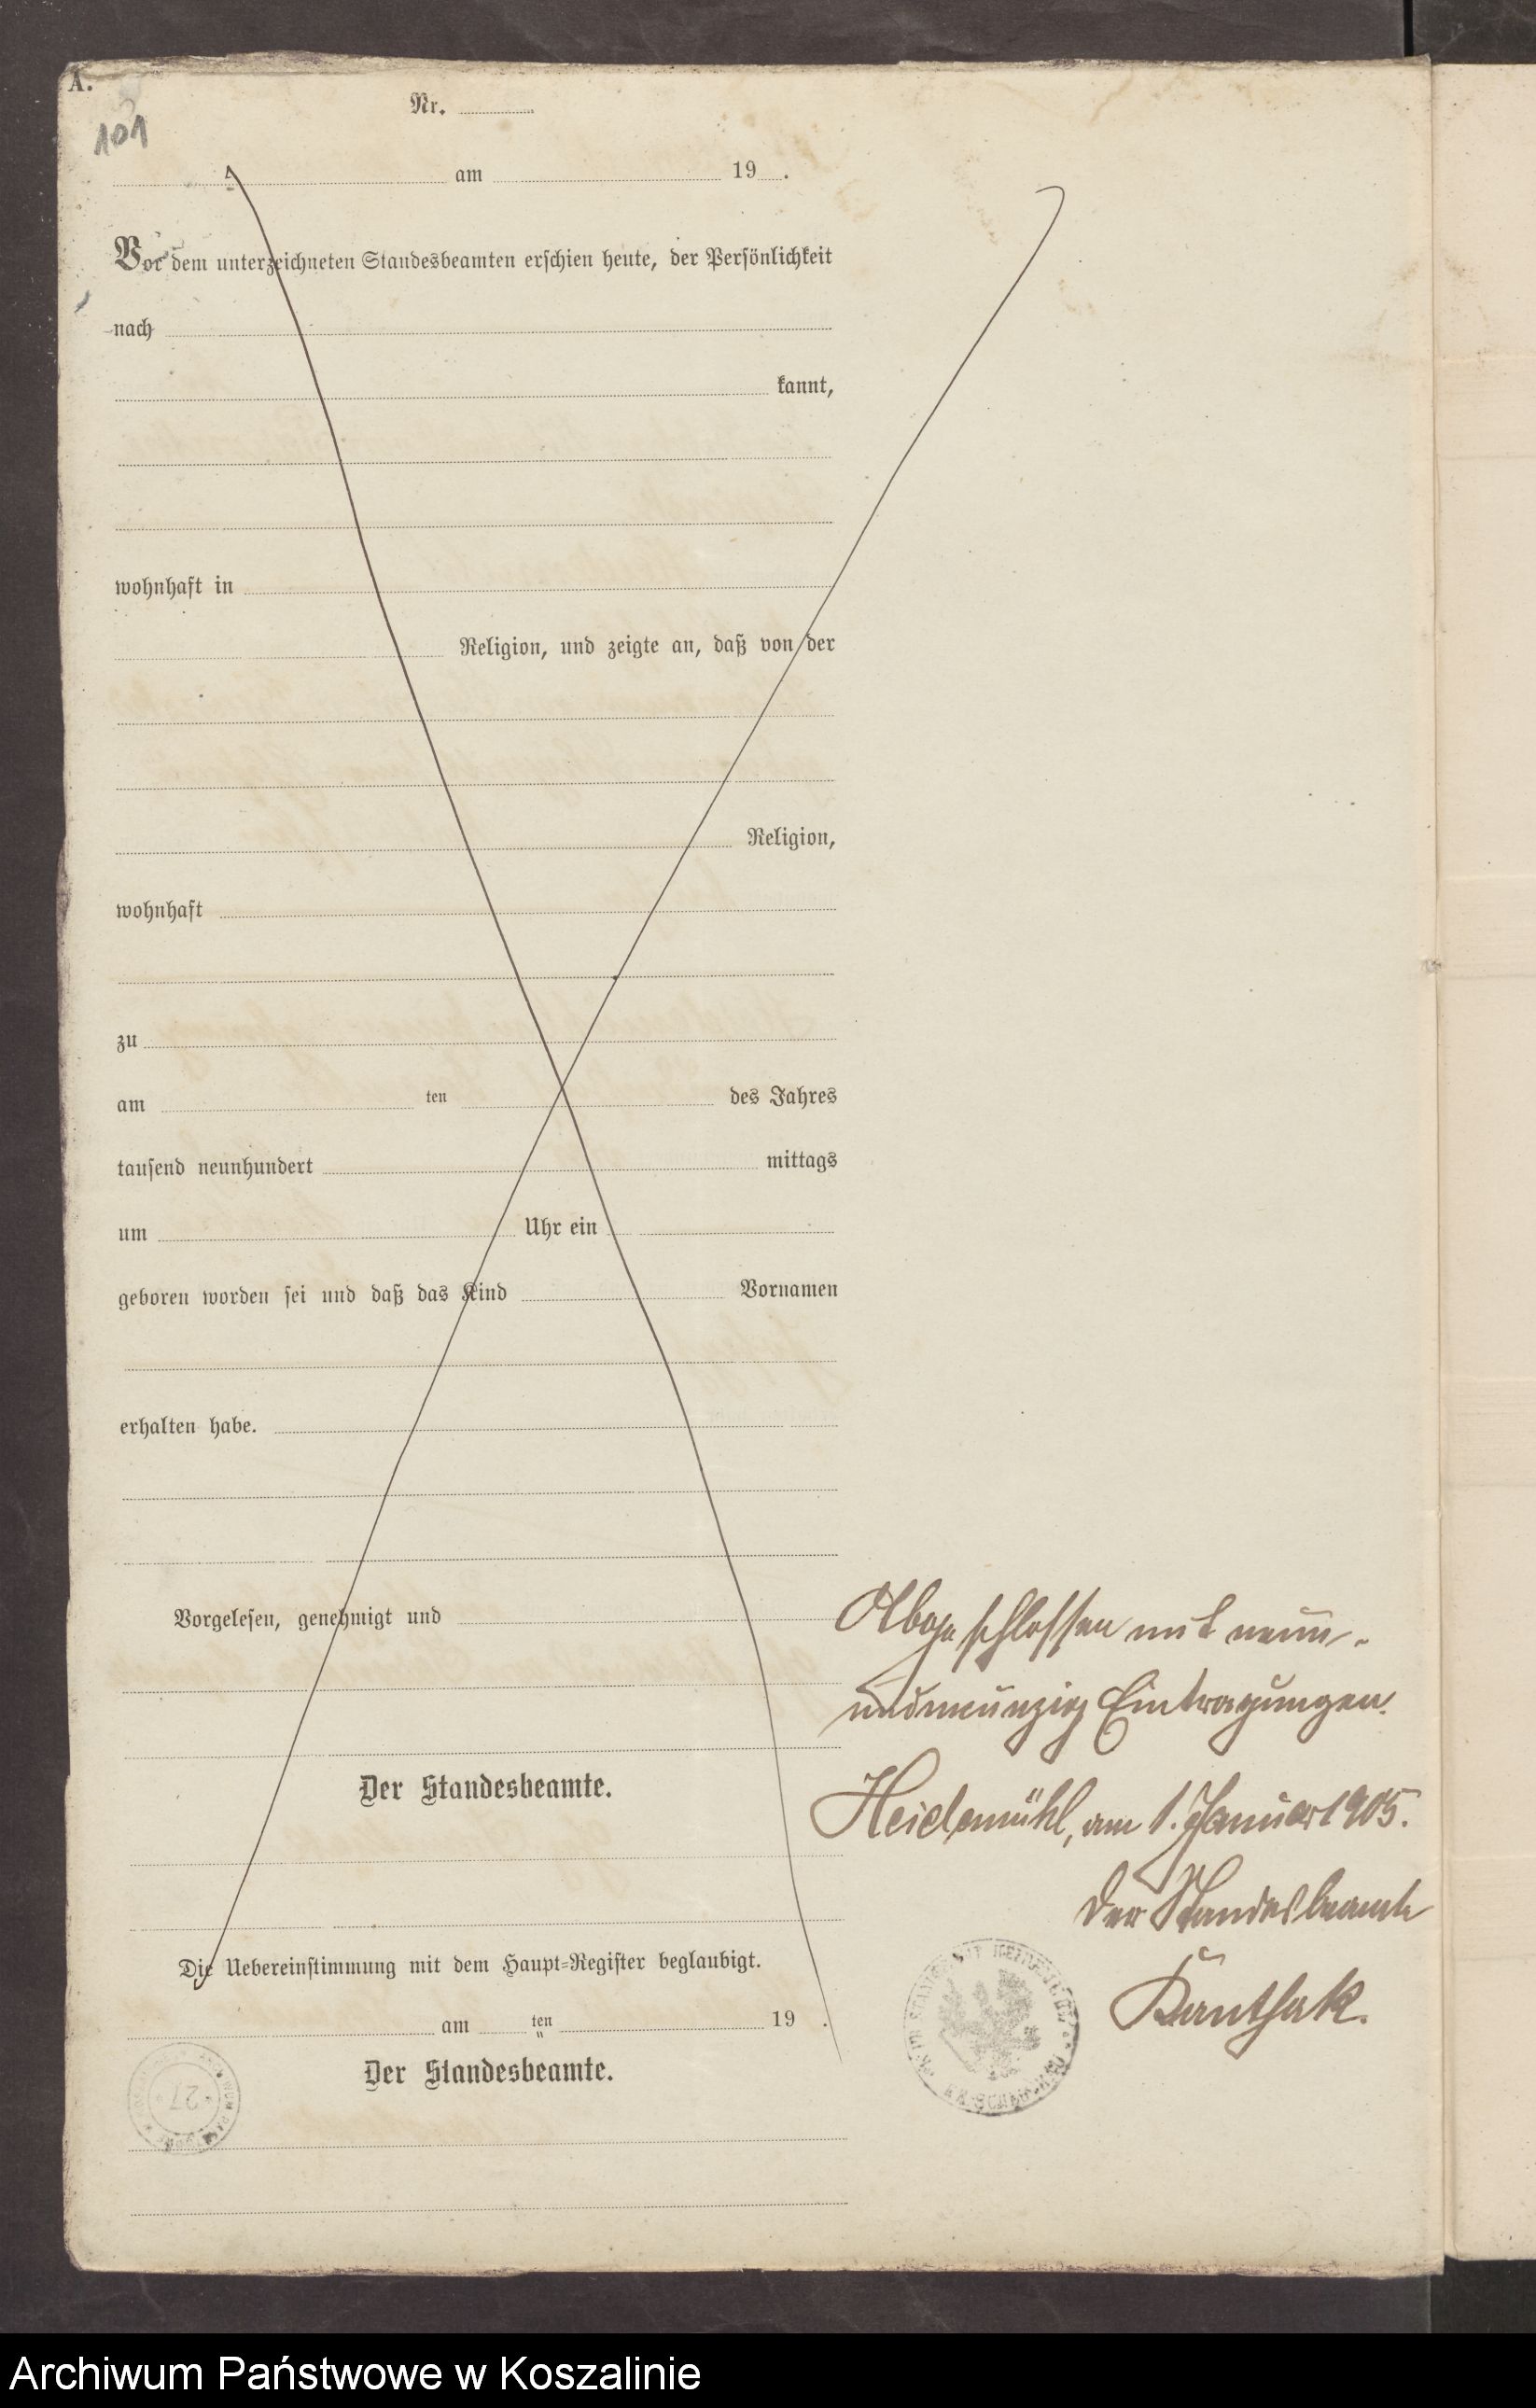 A.
101
Nr.
am 19 .
Vor dem unterzeichneten Standesbeamten erschien heute, der Persönlichkeit
nach
kannt,
wohnhaft in
Religion, und zeigte an, daß von der
Religion,
wohnhaft
zu
am ten des Jahres
tausend neunhundert mittags
um Uhr ein
geboren worden sei und daß das Kind Vornamen
erhalten habe.
Vorgelesen, genehmigt und
Abgeschlossen mit neun-
undneunzig Eintragungen.
Der Standesbeamte.
Heidemühl, am 1. Januar 1905.
Der Standesbeamte
Die Uebereinstimmung mit dem Haupt-Register beglaubigt.
am ten 19 .
Der Standesbeamte.
27
Archiwum Państwowe w Koszalinie